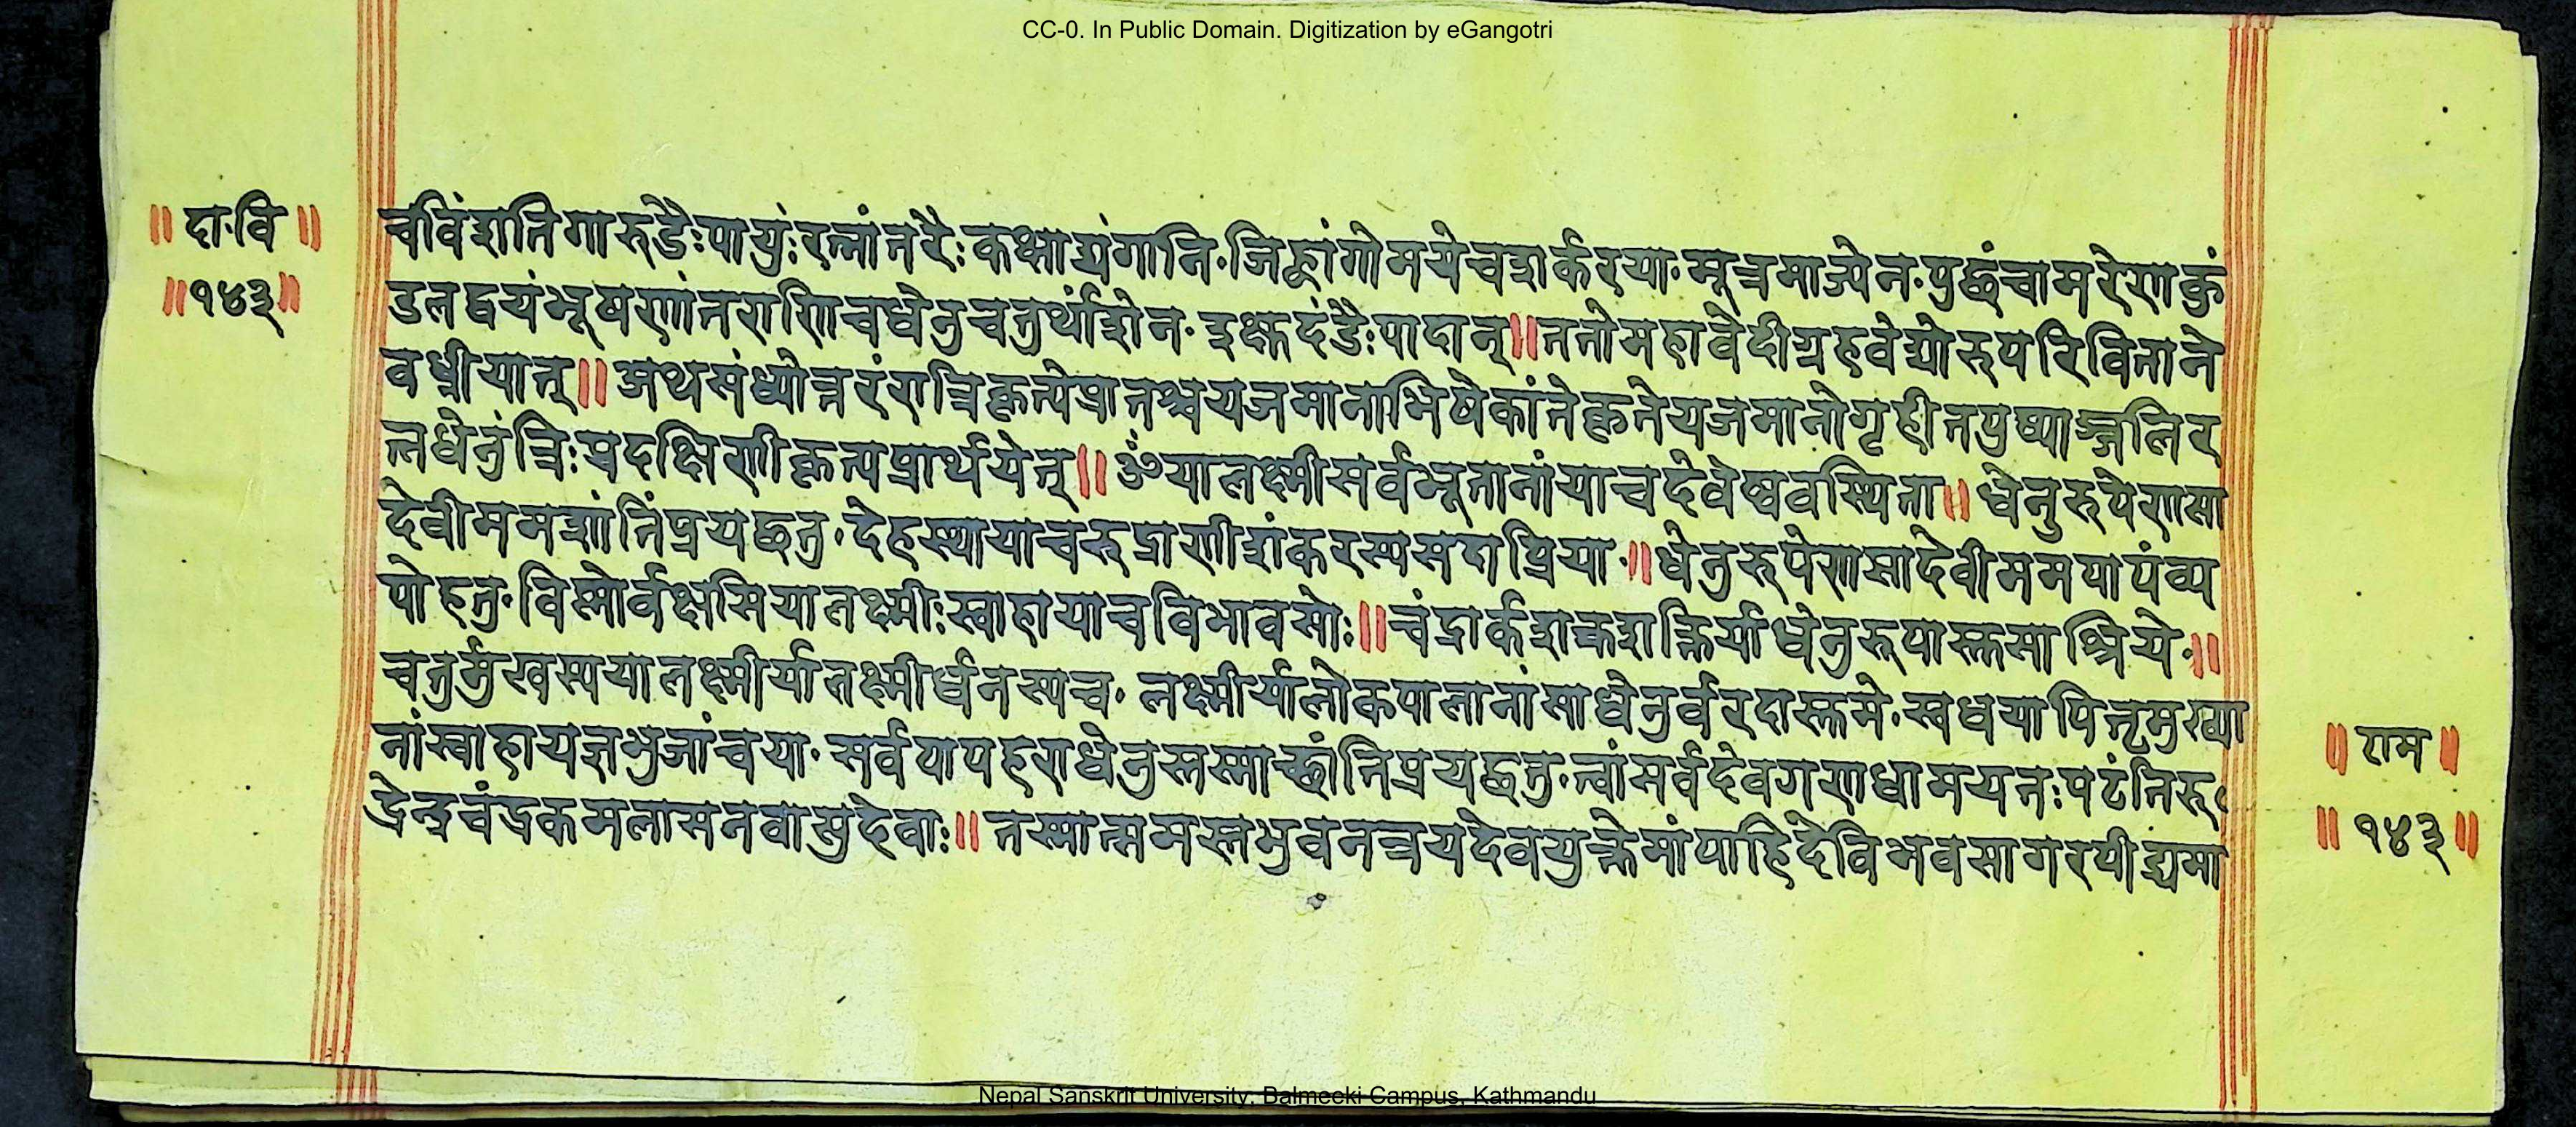 CC-0. In Public Domain. Digitization by eGangotri
॥ दा॰वि ॥
॥१४३॥
चविंशति गारुडैः पायुंः रत्नांतरैः कक्षाद्यंगानि॰ जिह्वां गोमये च शर्करया॰ मूत्रमाज्येन॰ पुछं चामरेण कुं
डलद्वयं भूषणांतराणि च धेनु चतुर्थांशेन॰ इक्षुदंडैः पादान्॥ ततो महावेदी ग्रहवेद्योरुपरि विताने
वध्नीयात्॥ अथ संध्योत्तरं रात्रिकृत्ये प्रातश्च यजमानाभिषेकांते कृते यजमानो गृहीतपुष्पाञ्जलि र
त्नधेनुं त्रिः प्रदक्षिणीकृत्य प्रार्थयेत्॥ ॐ या लक्ष्मी सर्वभूतानां या च देवेष्ववस्थिता॥ धेनुरुपेण सा
देवी मम शांतिं प्रयछतु॰ देहस्था या च रुद्राणी शंकरस्य सदा प्रिया॰॥ धेनुरुपेण सा देवी मम पापं व्य
पोहतु॰ विष्णोर्वक्षसि या लक्ष्मीः स्वाहा या च विभावसोः॥ चंद्रार्कशक्रशक्तिर्या धेनुरूपास्तु सा श्रिये॰॥
चतुर्मुखस्य या लक्ष्मीर्या लक्ष्मीर्धनस्य च॰ लक्ष्मीर्या लोकपालानां सा धेनुर्वरदास्तु मे॰ स्वधया पितृमुख्या
नां स्वाहा यज्ञभुजां च या॰ सर्वपापहरा धेनुस्तस्माच्छांति प्रयछतु॰ त्वां सर्वदेवगणधामयतः पठंति रु
द्रेन्द्र चंद्र कमलासन वासुदेवाः॥ तस्मात्समस्तभुवनत्रयदेवयुक्ते मां पाहि देवि भवसागरपीड्यमा
॥ राम ॥
॥ १४३॥
Nepal Sanskrit University, Balmeeki Campus, Kathmandu